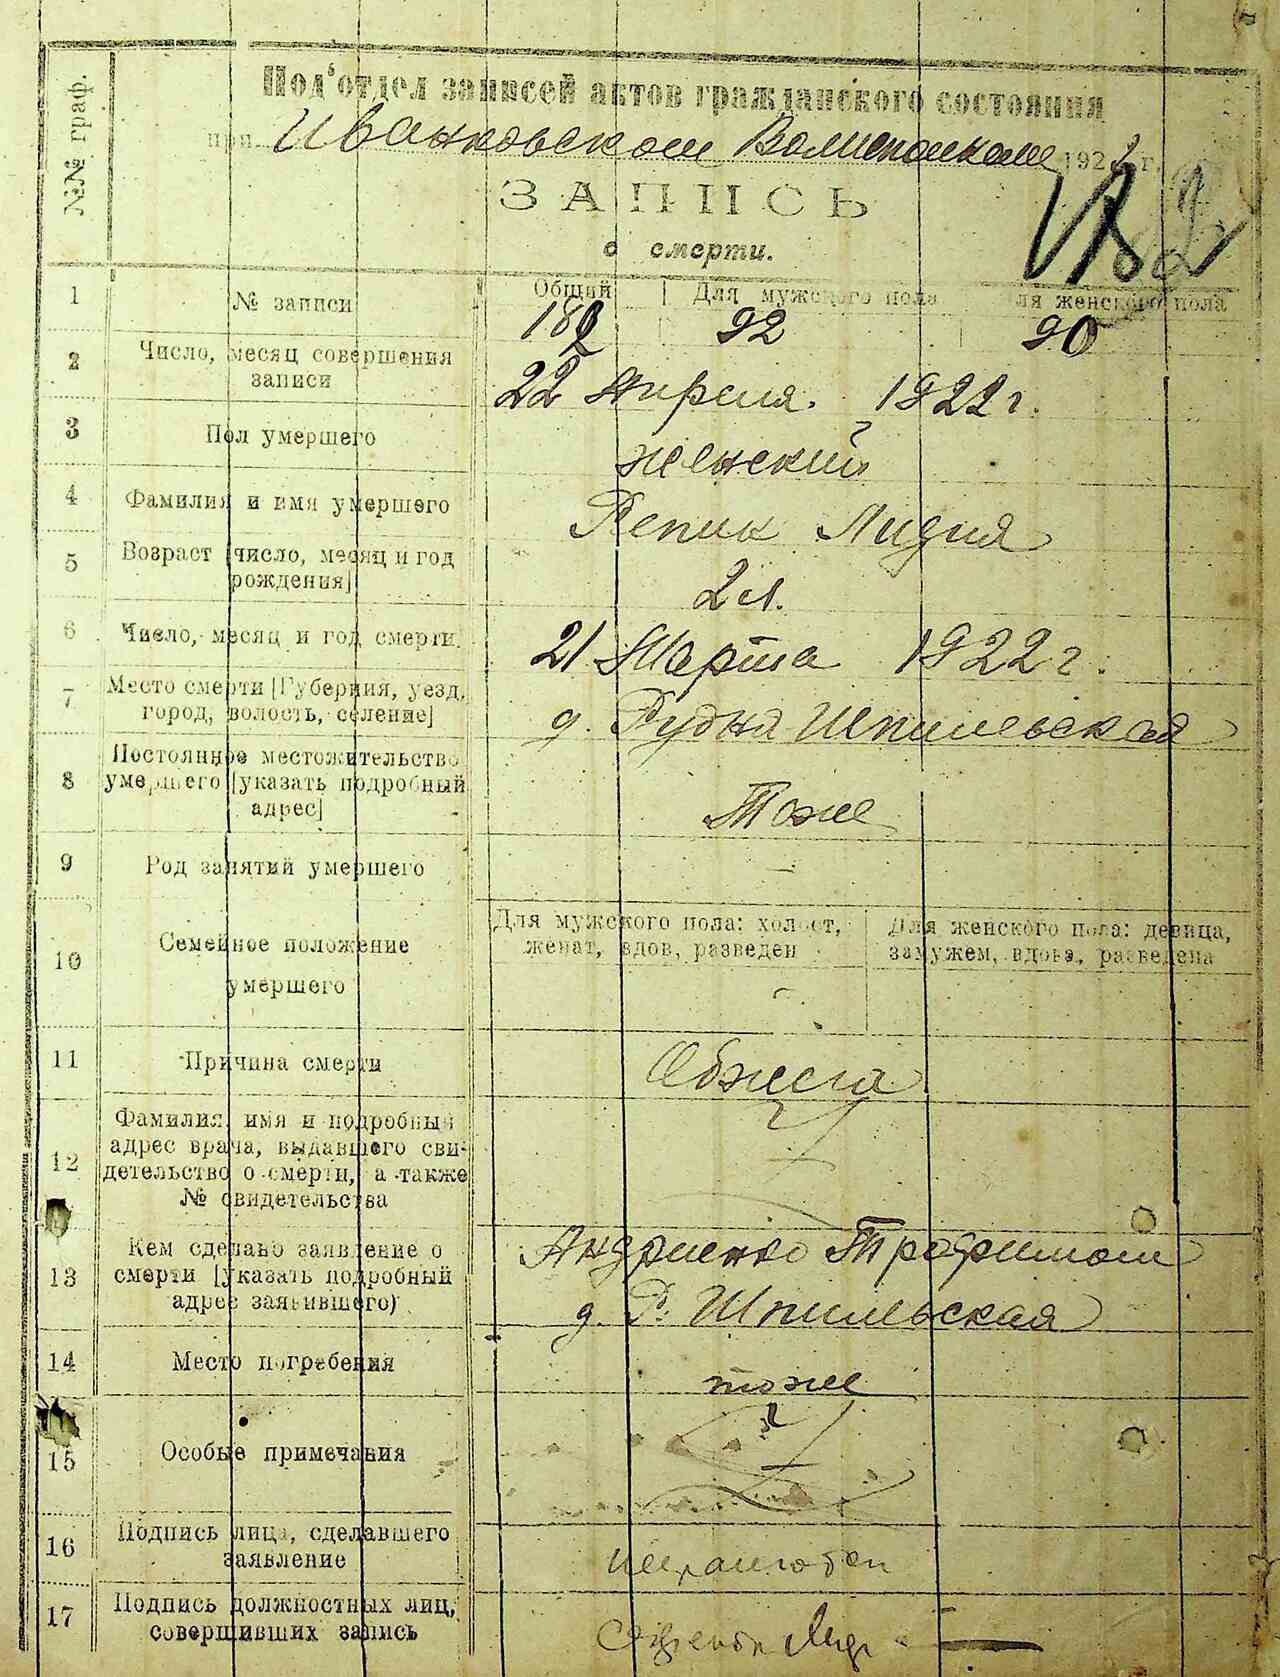 Под‘отдел записей актов гражданского состояния
при Иванковском Волисполкоме 1922 г.
ЗАПИСЬ
о смерти.
№№ граф.
1 № записи Общий Для мужского пола Для женского пола
182 92 90
2 Число, месяц совершения
записи
22 Апреля. 1922 г.
3 Пол умершего женский
4 Фамилия и имя умершего Репик Лидия
5 Возраст [число, месяц и год
рождения]
2 л.
6 Число, месяц и год смерти 21 Марта 1922 г.
7 Место смерти [Губерния, уезд,
город, волость, селение]
д. Рудня Шпилевская
8 Постоянное местожительство
умершего [указать подробный
адрес]
Тоже
9 Род занятий умершего —
10 Семейное положение
умершего
Для мужского пола: холост,
женат, вдов, разведен
Для женского пола: девица,
замужем, вдова, разведена
11 Причина смерти
12 Фамилия, имя и подробный
адрес врача, выдавшего сви-
детельство о смерти, а также
№ свидетельства
13 Кем сделано заявление о
смерти [указать подробный
адрес заявившего)
Андриенко Трофимом
д. Р. Шпильская
14 Место погребения тоже
15 Особые примечания
16 Подпись лица, сделавшего
заявление
неграмотен
17 Подпись должностных лиц,
совершивших запись